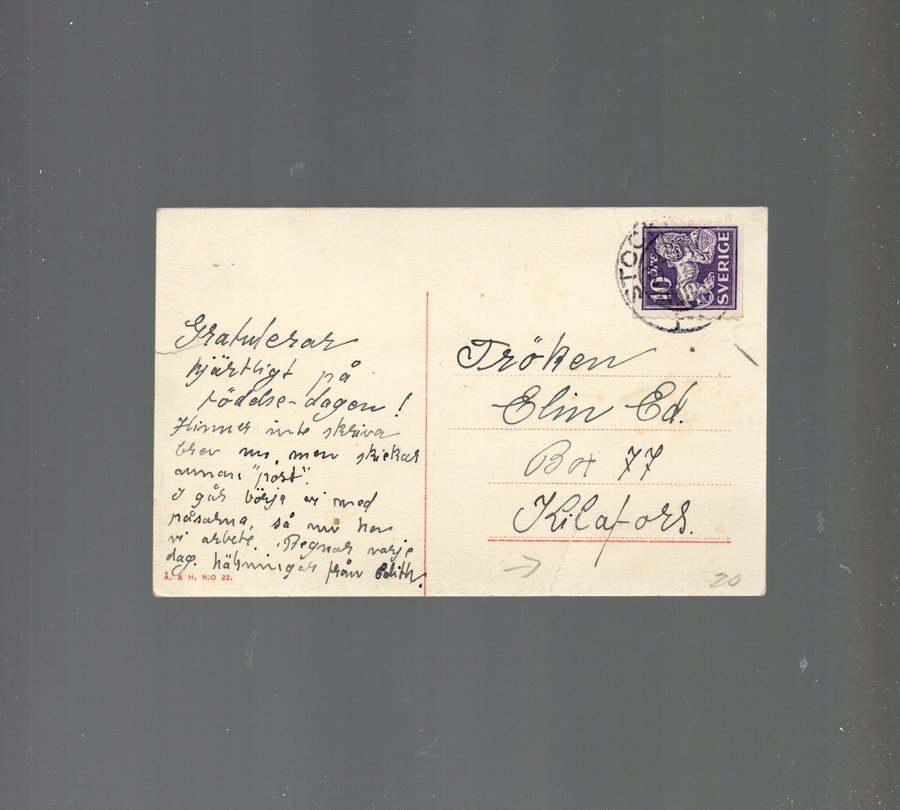 Gratulerar
hjärtligt på
födelse-dagen!
Hinner inte skriva
brev nu, men skickar
annan "post".
I går börja vi med
påsarna, så nu ha
vi arbete. Regnar varje
dag. hälsningar från Edith.
Å. & H. N:O 22.
STOC
10 ÖRE
SVERIGE
Fröken
Elin Ed.
Box 77
Kilafors.
20